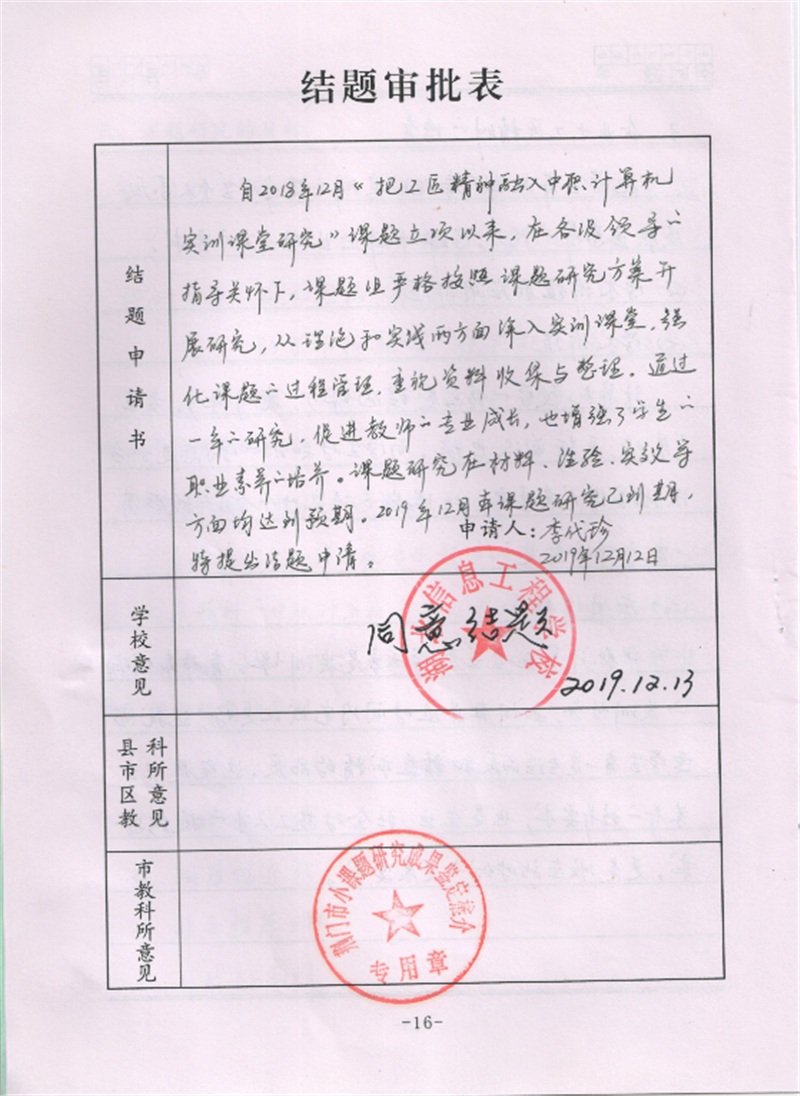 结题审批表
结题申请书
自2018年12月“把工匠精神融入中职计算机
实训课堂研究”课题立项以来,在各级领导的
指导关怀下,课题组严格按照课题研究方案开
展研究,从理论和实践两方面深入实训课堂,强
化课题的过程管理,重视资料收集与整理。通过
一年的研究,促进教师的专业成长,也增强了学生的
职业素养的培养。课题研究在材料、经验、实效等
方面均达到预期。2019年12月本课题研究已到期,
特提出结题申请。
申请人:李代珍
2019年12月12日
学校意见
信息工程学校
同意结题
2019.12.13
县市区教科所意见
市教科所意见
荆门市小课题研究成果鉴定推介
专用章
-16-